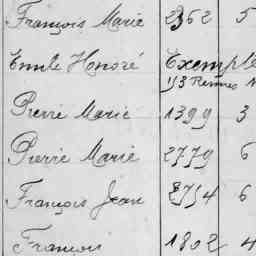 François Marie 2362 5
Emile Honoré Exemple
Pierre Marie 1399 3
Pierre Marie 2779 6
François Jean 2754 6
François 1802 4